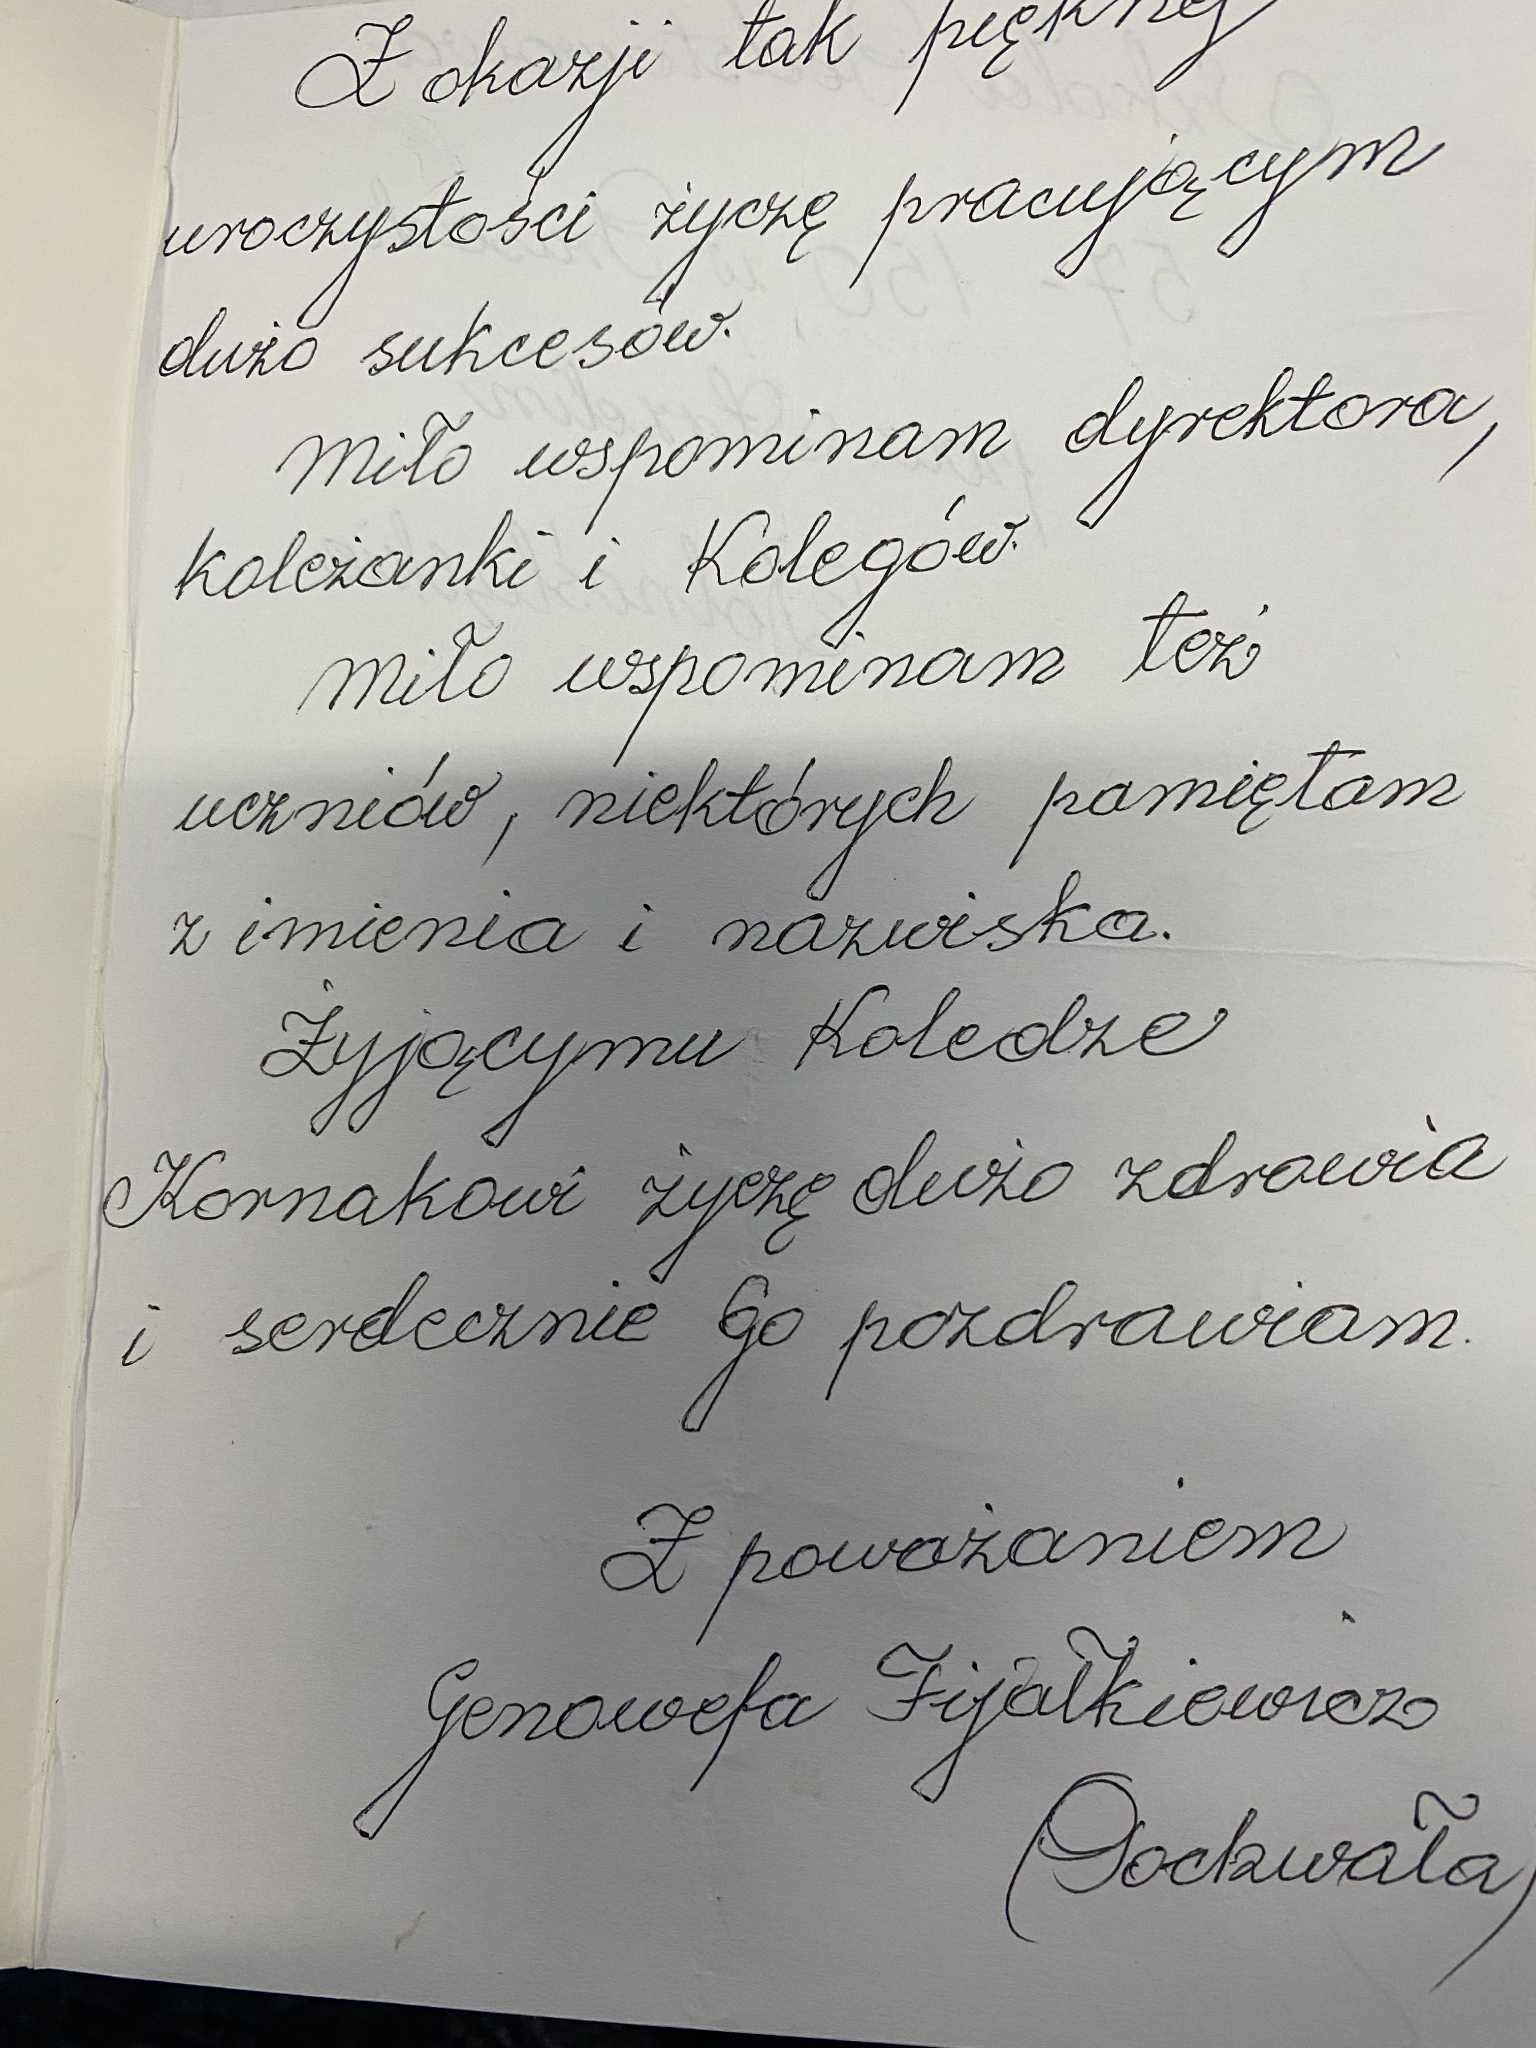 Z okazji tak pięknej
uroczystości życzę pracującym
dużo sukcesów.
Miło wspominam dyrektora,
koleżanki i Kolegów.
Miło wspominam też
uczniów, niektórych pamiętam
z imienia i nazwiska.
Żyjącymu Koledze
Kornakowi życzę dużo zdrowia
i serdecznie Go pozdrawiam.
Z poważaniem
Genowefa Fijałkiewicz